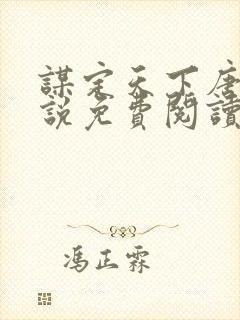 謀定天下唐
說免費閱讀
馮正霖